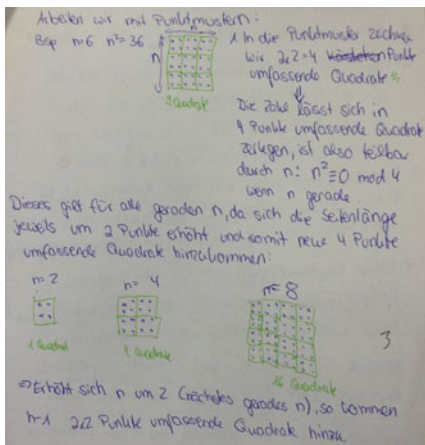 Arbeiten wir mit Punktmustern:
Bsp n=6 n²=36
n
n
9 Quadrate
1. In die Punktmuster zeichnen
wir 2x2=4 Punkte
umfassende Quadrate
Die Zahl lässt sich in
4 Punkte umfassende Quadrate
zerlegen, ist also teilbar
durch n: n²≡0 mod 4
wenn n gerade
Dieses gilt für alle geraden n, da sich die Seitenlänge
jeweils um 2 Punkte erhöht und somit neue 4 Punkte
umfassende Quadrate hinzukommen:
n=2
n=4
n=8
1 Quadrat
4 Quadrate
16 Quadrate
3
⇒Erhöht sich n um 2 (nächstes gerades n), so kommen
n-1 2x2 Punkte umfassende Quadrate hinzu.